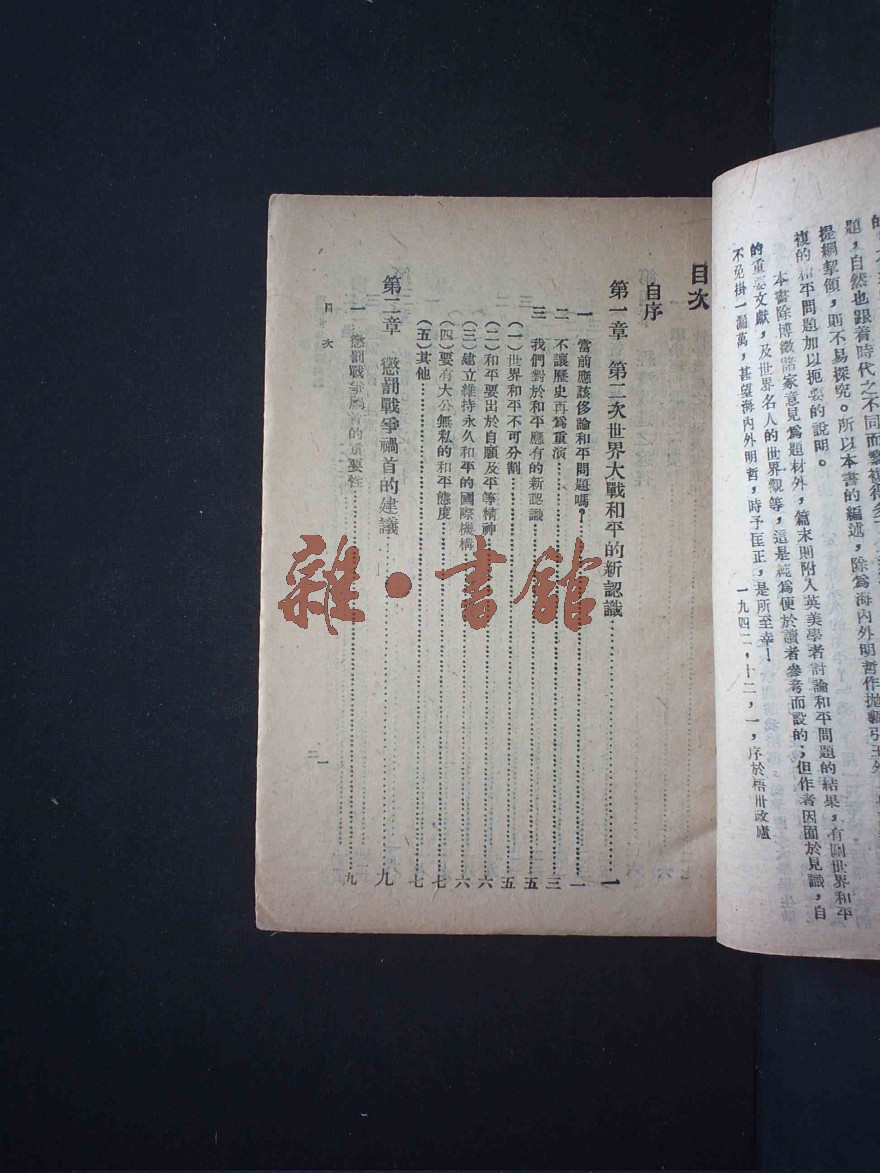 題，自然也跟着時代之不同而繁複得多
提綱挈領，則不易探究。所以本書的編述，除爲海內外明哲作拋磚引玉外
複的和平問題加以扼要的說明。
本書除博徵諸家意見爲題材外，篇末則附入英美學者討論和平問題的結果，有關世界和平
的重要文獻，及世界名人的世界觀等，這是純爲便於讀者參考而設的；但作者因囿於見識，自
不免掛一漏萬，甚望海內外明哲，時予匡正，是所至幸！
一九四二，十二，一，序於梧州政廬
目次
自序
第一章 第二次世界大戰和平的新認識……一
一 當前應該侈論和平問題嗎？……一
二 不讓歷史再爲重演……三
三 我們對於和平應有的新認識……五
（一）世界和平不可分割……五
（二）和平要出於自願及平等精神……六
（三）建立維持永久和平的國際機構……六
（四）要有大公無私的和平態度……七
（五）其他……七
第二章 懲罰戰爭禍首的建議……九
一 懲罰戰爭禍首的重要性……九
目次
一
雜·書館